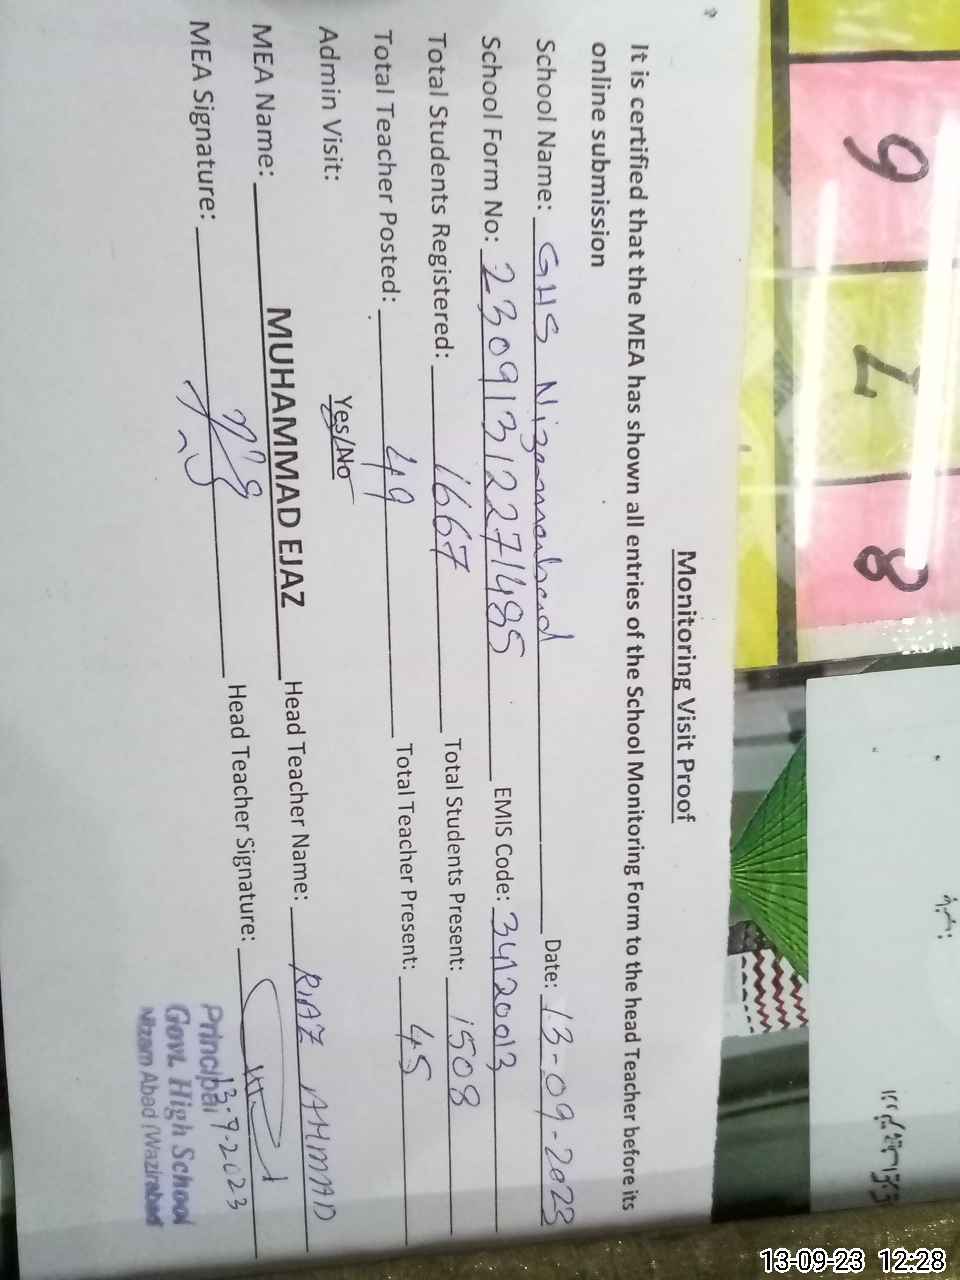 Monitoring Visit Proof
It is certified that the MEA has shown all entries of the School Monitoring Form to the head Teacher before its
online submission
School Name: GHS Nizamabad Date: 13-09-2023
School Form No: 23091312271485 EMIS Code: 34120013
Total Students Registered: 1667 Total Students Present: 1508
Total Teacher Posted: 49 Total Teacher Present: 45
Admin Visit: Yes/No
MEA Name: MUHAMMAD EJAZ Head Teacher Name: RIAZ AHMAD
MEA Signature: Head Teacher Signature:
Principal
13.9.2023
Govt. High School
Nizam Abad (Wazirabad
6
7
8
13-09-23 12:28